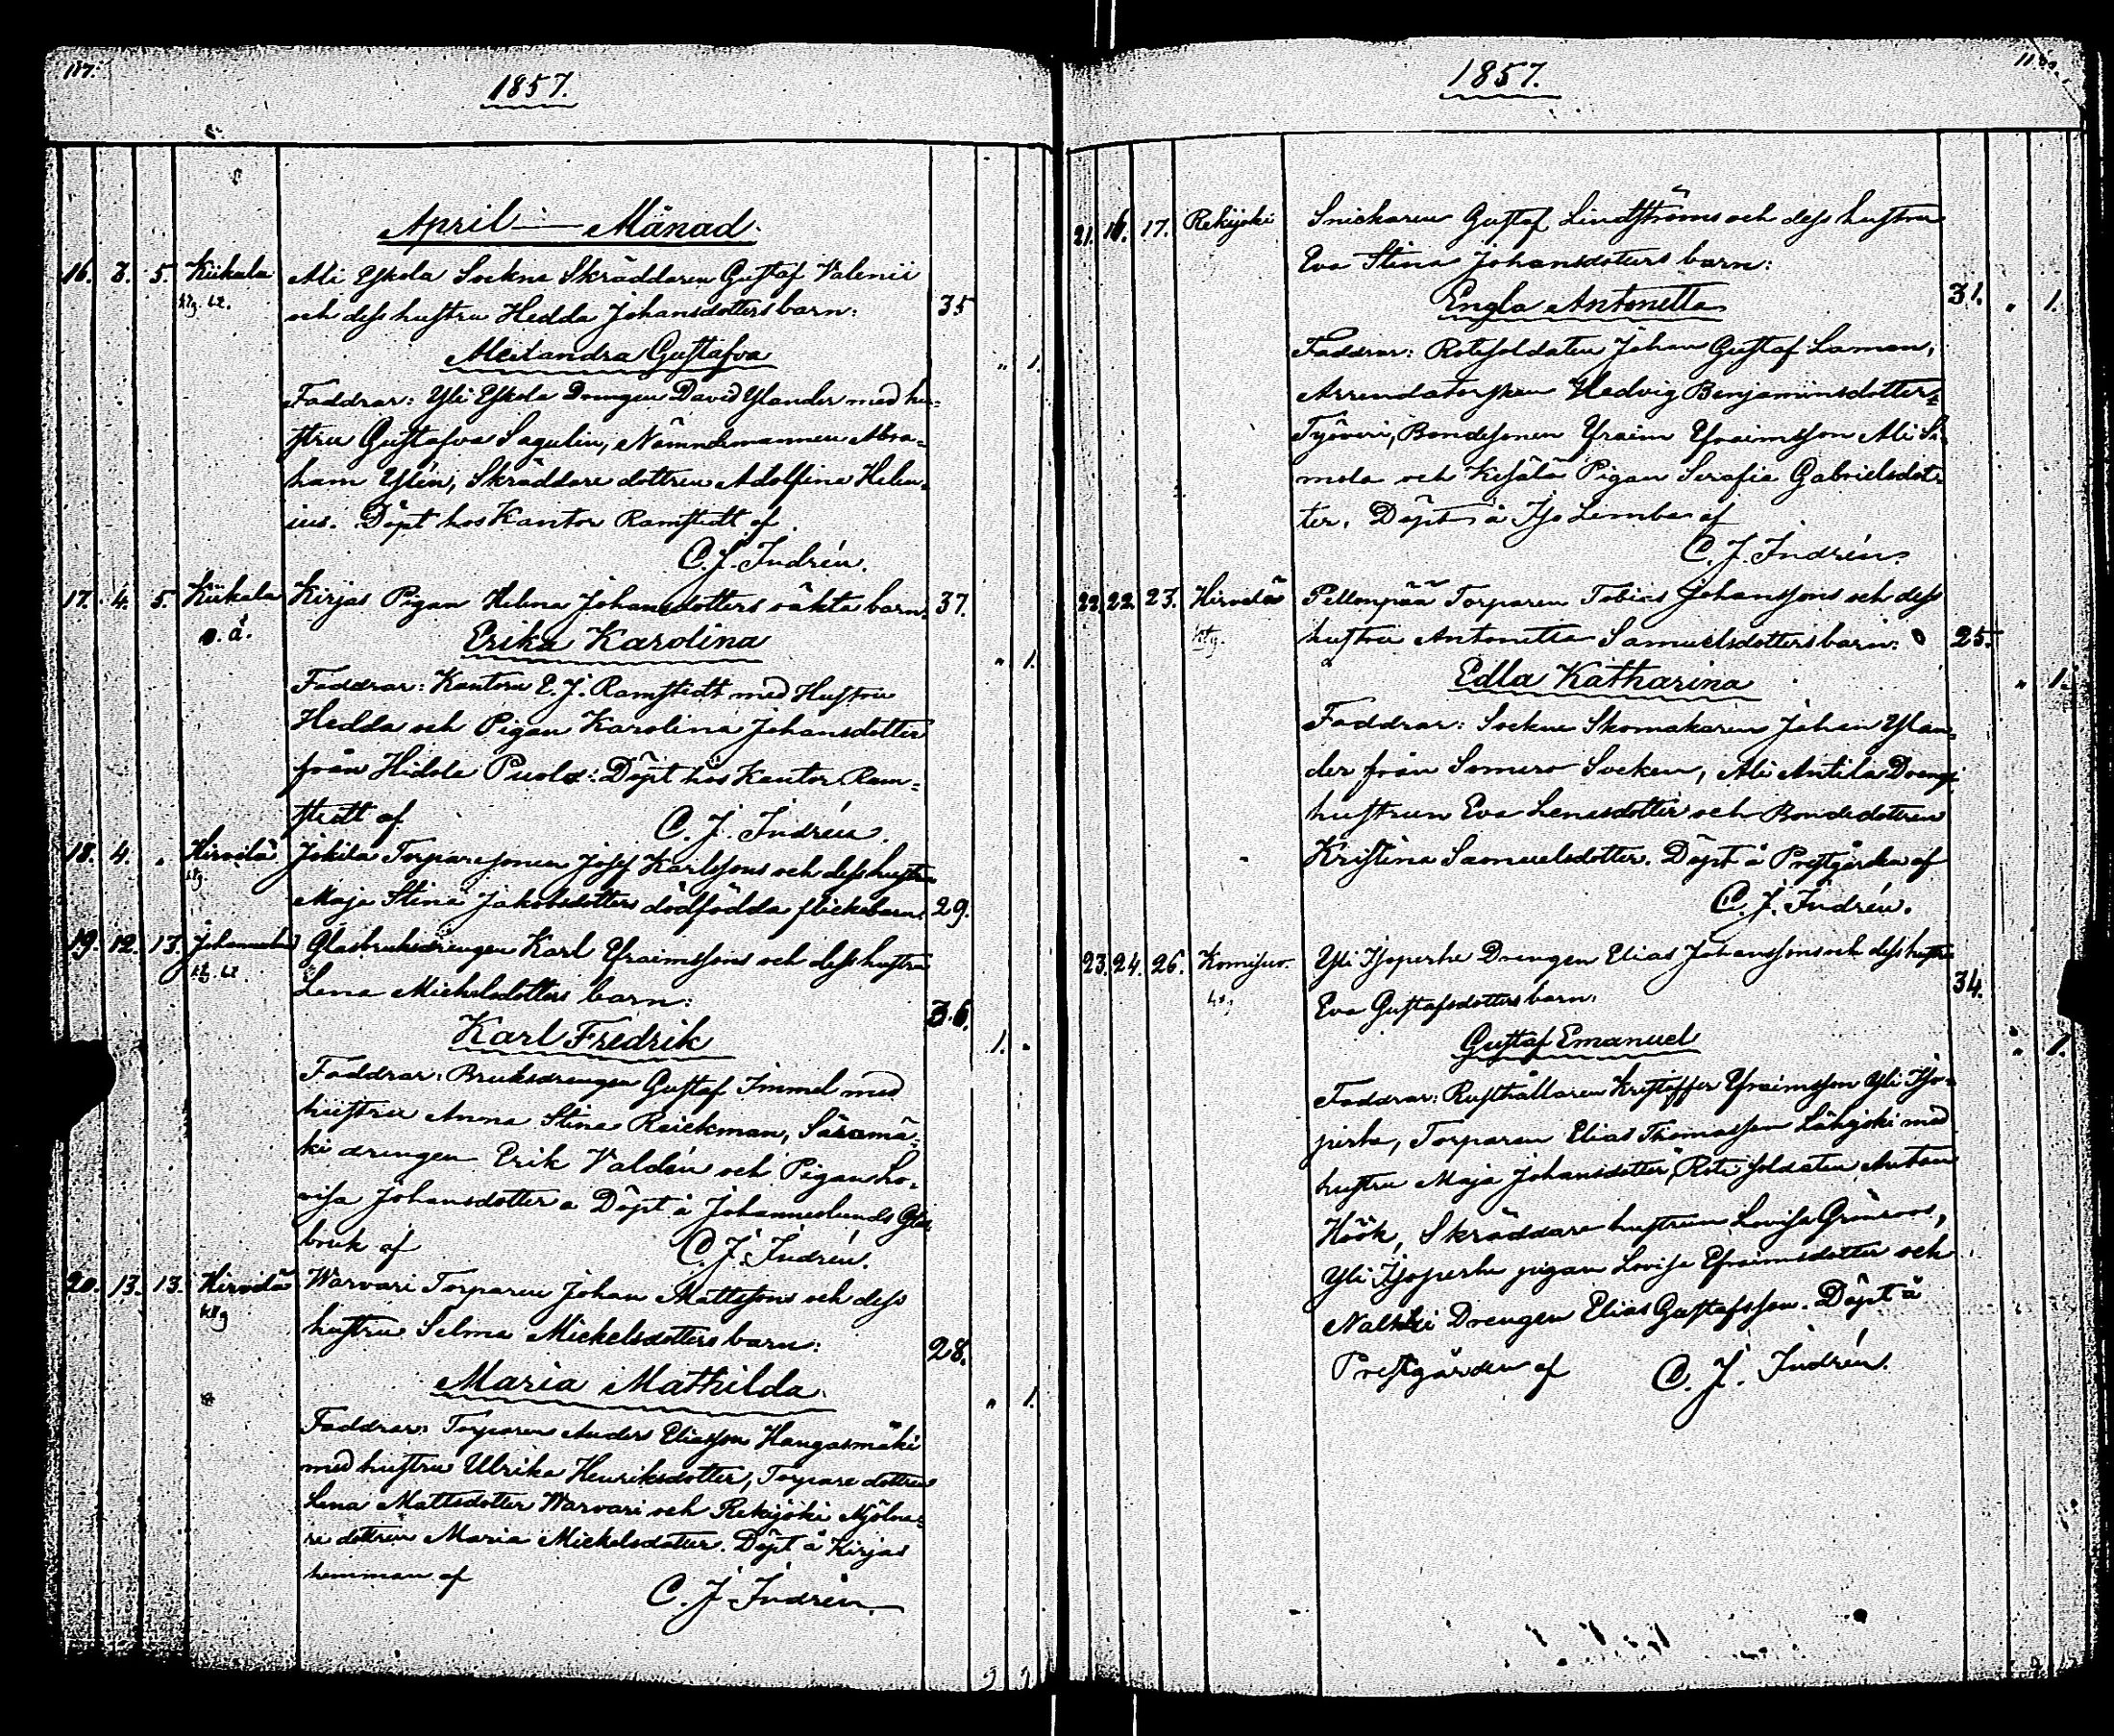 117.
1857.
April — Månad.
16. 3. 5. Kiikala Ali Yskola Sockne Skräddaren Gustaf Valenii
och dess hustru Hedda Johansdotters barn: 35
Alexandra Gustafva " 1.
Faddrar: Yli Yskola Drengen David Ylander med hu-
stru Gustafva Sagulin, Nämndemannen Abra-
ham Ylén, Skräddare dottren Adolfina Helen-
ius. Döpt hos Kantor Ramstedt af
C. J. Indrén.
17. 4. 5. Kiikala Kirjas Pigan Helena Johansdotters oäkta barn. 37.
o. ä. Erika Karolina " 1.
Faddrar: Kantorn E. J. Ramstedt med Hustru
Hedda och Pigan Karolina Johansdotter
från Hidola Puola. Döpt hos Kantor Ram-
stedt af C. J. Indrén.
18. 4. " Hirvelä Jokila Torparesonen Josef Karlssons och dess hustru
Maja Stina Jakobsdotters dödfödda flickebarn. 29.
19. 12. 13. Johanneslund Glasbruksdrengen Karl Efraimssons och dess hustru
Lena Michelsdotters barn: 36.
Karl Fredrik 1. "
Faddrar: Bruksdrengen Gustaf Immel med
hustru Anna Stina Raickman, Säramä-
ki drengen Erik Valdén och Pigan Lo-
visa Johansdotter. Döpt å Johanneslunds Glas
bruk af C. J. Indrén.
20. 13. 13. Hirvelä Warvari Torparen Johan Mattssons och dess
hustru Selma Mickelsdotters barn: 28.
Maria Mathilda " 1.
Faddrar: Torparen Anders Eliasson Hangasmäki
med hustru Ulrika Henriksdotter, Torpare dottren
Lena Mattsdotter Warvari och Rekijoki Mjölna-
re dottren Maria Mickelsdotter. Döpt å Kirjas
hemman af
C. J. Indrén.
1857.
21. 16. 17. Rekijoki Snickaren Gustaf Lindströms och dess hustru
Eva Stina Johansdotters barn:
Engla Antonetta 31. " 1.
Faddrar: Rotesoldaten Johan Gustaf Laman,
Arrendatorskan Hedvig Benjaminsdotter
Työveri, Bondesonen Efraim Efraimsson Ali Sa-
mola och Kesälä Pigan Serafia Gabrielsdot-
ter. Döpt å Iso Lemba af
C. J. Indrén.
22. 22. 23. Hirvelä Pellonpää Torparen Tobias Johanssons och dess
hustru Antonetta Samuelsdotters barn: 25.
Edla Katharina " 1.
Faddrar: Sockne Skomakaren Johan Ylan-
der från Somero Socken, Ali Antila Drengs
hustrun Eva Lenasdotter och Bondedottren
Kristina Samuelsdotter. Döpt å Prestgården af
C. J. Indrén.
23. 24. 26. Komisuo. Yli Isoperhe Drengen Elias Johanssons och dess hustru
Eva Gustafsdotters barn. 34.
Gustaf Emanuel " 1.
Faddrar: Rusthållaren Kristoffer Efraimsson Yli Iso-
perhe, Torparen Elias Thomasson Lähijoki med
hustru Maja Johansdotter, Rote soldaten Anton
Höök, Skräddare hustrun Lovisa Grönroos,
Yli Isoperhe pigan Lovisa Efraimsdotter och
Drengen Elias Gustafsson. Döpt å
Prestgården af C. J. Indrén.